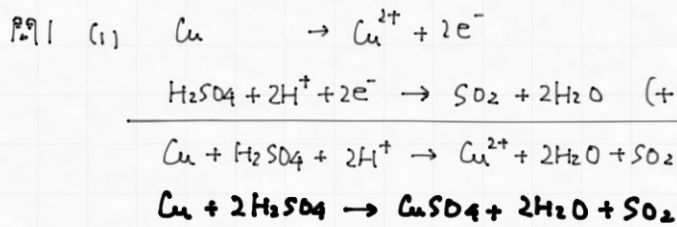 問1 (1) Cu → Cu²⁺ + 2e⁻
H₂SO₄ + 2H⁺ + 2e⁻ → SO₂ + 2H₂O (+
Cu + H₂SO₄ + 2H⁺ → Cu²⁺ + 2H₂O + SO₂
Cu + 2H₂SO₄ → CuSO₄ + 2H₂O + SO₂